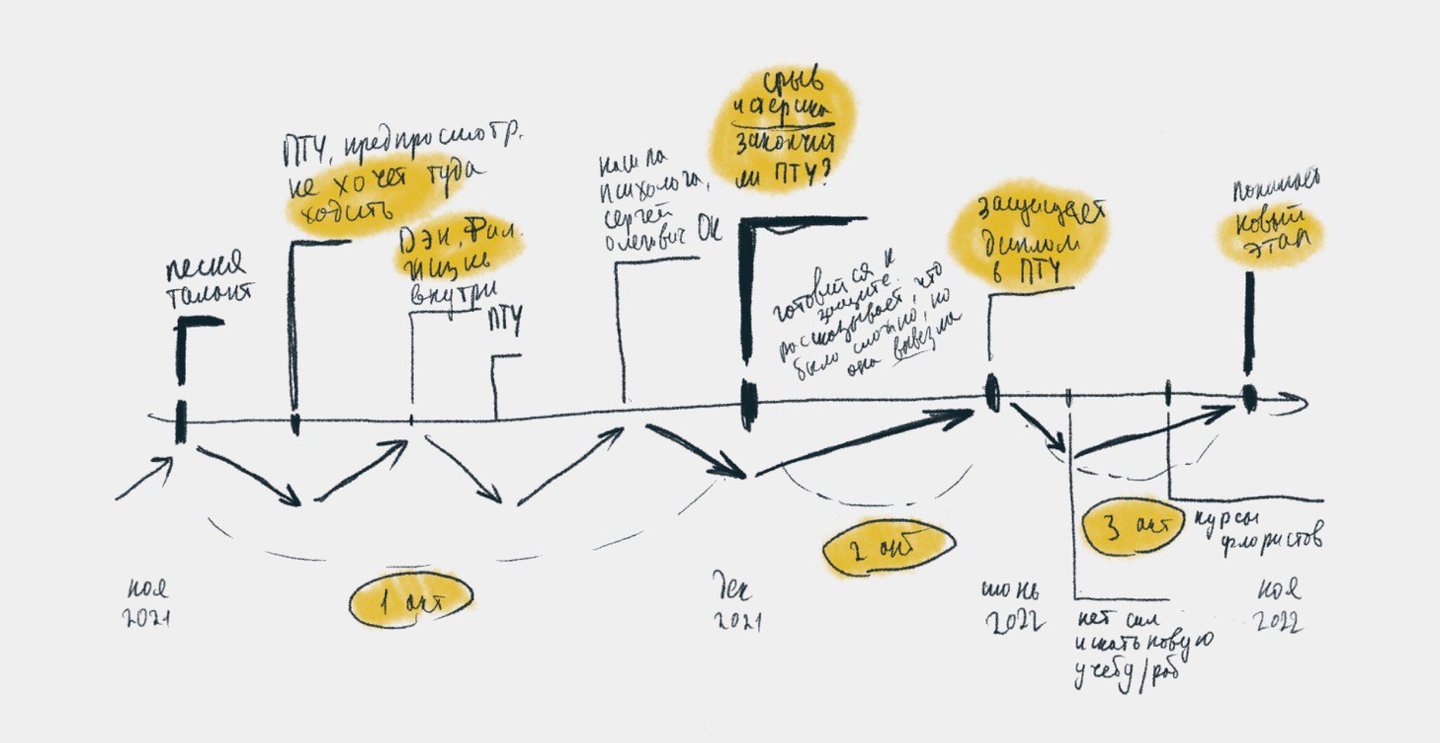 песня
талант
ПТУ, предпросмотр.
не хочет туда
ходить
Дэн, Фил.
жизнь
внутри
ПТУ
нашла
психолога,
сергей
олегович ОК
срыв
истерика
закончит
ли ПТУ?
готовится к
защите.
рассказывает, что
было сложно, но
она вывезла
защищает
диплом
в ПТУ
понимает
новый
этап
1 акт
2 акт
3 акт
курсы
флористов
ноя
2021
дек
2021
июнь
2022
нет сил
искать новую
учебу/раб
ноя
2022